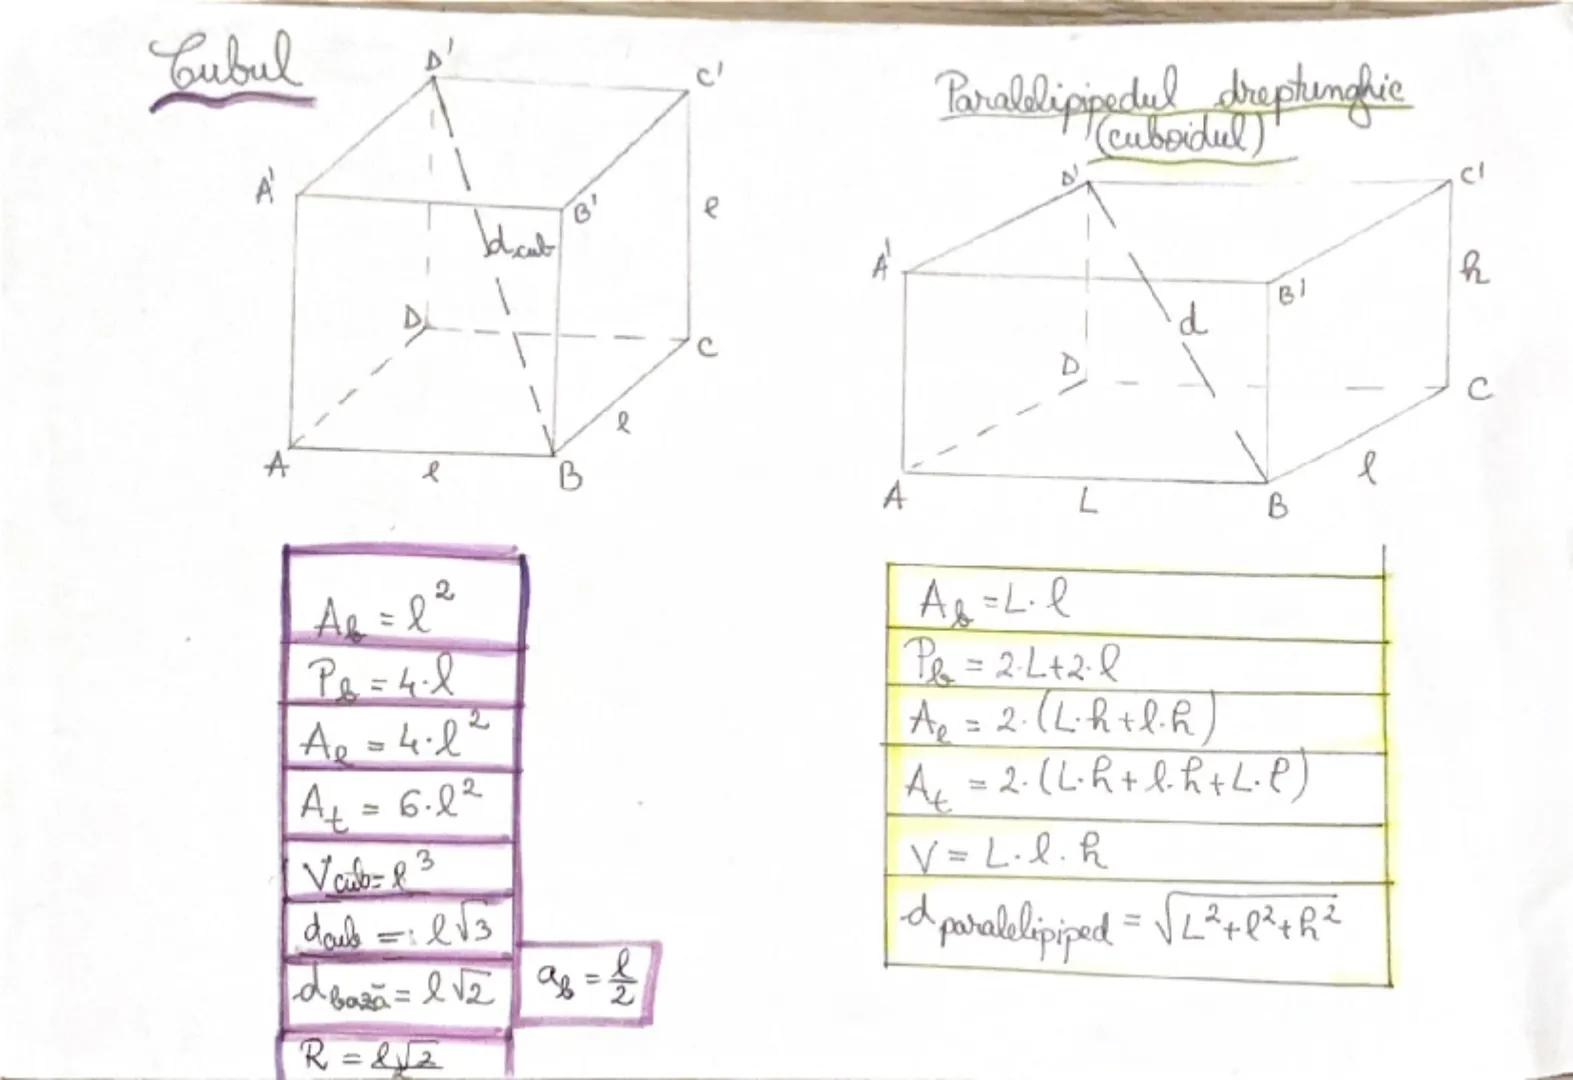 Cubul
D'
C'
A'
B'
l
dcub
D
C
l
A
l
B
Ab = l²
Pb = 4·l
Al = 4·l²
At = 6·l²
Vcub = l³
dcub = l√3
dbază = l√2
ab = l/2
R = l√2/2
Paralelipipedul dreptunghic
(cuboidul)
D'
C'
A'
B'
h
d
D
C
l
A
L
B
Ab = L·l
Pb = 2·L+2·l
Al = 2·(L·h+l·h)
At = 2·(L·h+l·h+L·l)
V = L·l·h
dparalelipiped = √L²+l²+h²